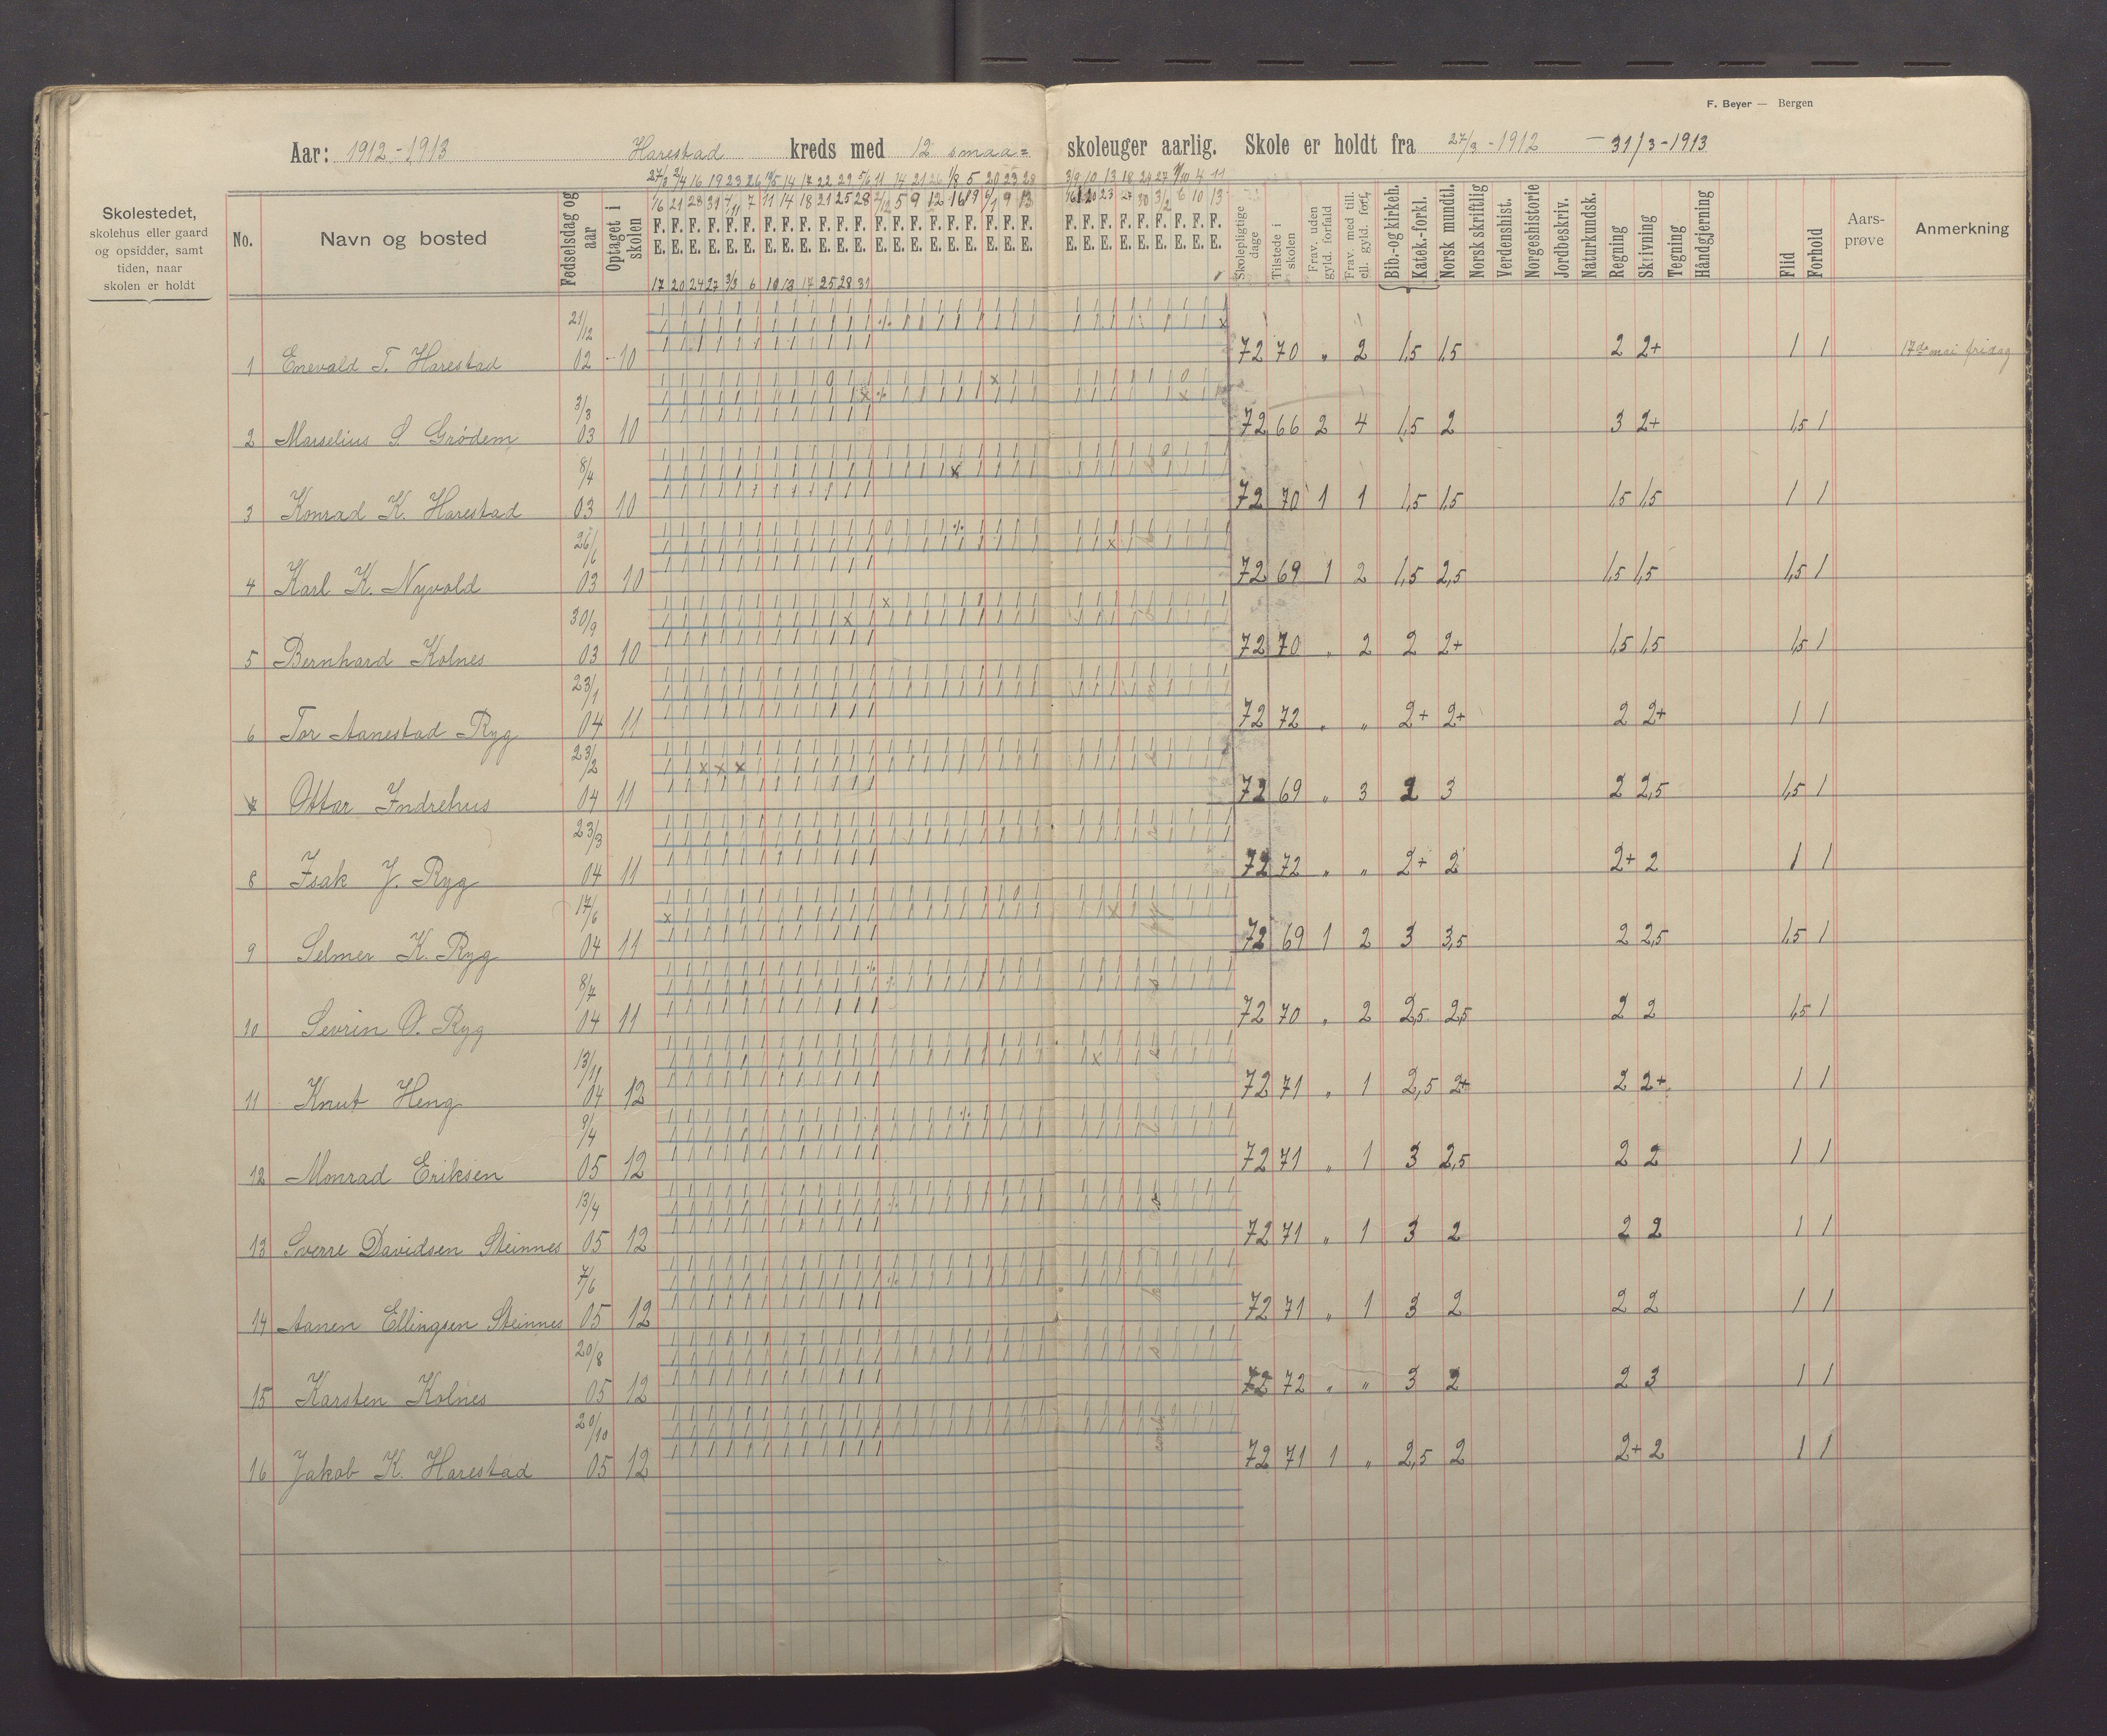 F. Beyer — Bergen
Aar: 1912-1913 Harestad kreds med 12 smaa= skoleuger aarlig. Skole er holdt fra 27/3 - 1912 — 31/3 - 1913
Skolestedet,
skolehus eller gaard
og opsidder, samt
tiden, naar
skolen er holdt
No. Navn og bosted Fødselsdag og aar Optaget i skolen
27/3 2/4 16 19 23 26 10/5 14 17 22 29 5/6 11 14 21 26 1/8 5 20 23 28 3/9 10 13 18 24 27 1/10 4 11
1/6 21 28 31 7/11 7 11 14 18 21 25 28 2/12 5 9 12 16 19 6/1 9 13 16 20 23 27 30 3/2 6 10 13
F. F. F. F. F. F. F. F. F. F. F. F. F. F. F. F. F. F. F. F. F. F. F. F. F. F. F. F. F. F.
E. E. E. E. E. E. E. E. E. E. E. E. E. E. E. E. E. E. E. E. E. E. E. E. E. E. E. E. E. E.
17 20 24 27 3/3 6 10 13 17 25 28 31
Skolepligtige dage Tilstede i skolen Frav. uden gyld. forfald Frav. med till. ell. gyld. forf. Bib.- og kirkeh. Katek.-forkl. Norsk mundtl. Norsk skriftlig Verdenshist. Norgeshistorie Jordbeskriv. Naturkundsk. Regning Skrivning Tegning Håndgjerning Flid Forhold Aars-prøve Anmerkning
1 Enevald T. Harestad 21/12 02 10 72 70 " 2 1,5 1,5 2 2+ 1 1 17de mai fridag
2 Marselius S. Grødem 3/3 03 10 72 66 2 4 1,5 2 3 2+ 1,5 1
3 Konrad K. Harestad 8/4 03 10 72 70 1 1 1,5 1,5 1,5 1,5 1 1
4 Karl K. Nyvold 26/6 03 10 72 69 1 2 1,5 2,5 1,5 1,5 1,5 1
5 Bernhard Kolnes 30/9 03 10 72 70 " 2 2 2+ 1,5 1,5 1,5 1
6 Tor Aanestad Ryg 23/1 04 11 72 72 " " 2+ 2+ 2 2+ 1 1
7 Ottar Indrehus 23/2 04 11 72 69 " 3 2 3 2 2,5 1,5 1
8 Isak J. Ryg 23/3 04 11 72 72 " " 2+ 2 2+ 2 1 1
9 Selmer K. Ryg 17/6 04 11 72 69 1 2 3 3,5 2 2,5 1,5 1
10 Sevrin O. Ryg 8/7 04 11 72 70 " 2 2,5 2,5 2 2 1,5 1
11 Knut Heng 13/11 04 12 72 71 " 1 2,5 2+ 2 2+ 1 1
12 Monrad Eriksen 9/4 05 12 72 71 " 1 3 2,5 2 2 1 1
13 Sverre Davidsen Steinnes 13/4 05 12 72 71 " 1 3 2 2 2 1 1
14 Aanen Ellingsen Steinnes 7/6 05 12 72 71 " 1 3 2 2 2 1 1
15 Karsten Kolnes 20/8 05 12 72 72 " " 3 2 2 3 1 1
16 Jakob K. Harestad 20/10 05 12 72 71 1 " 2,5 2 2+ 2 1 1